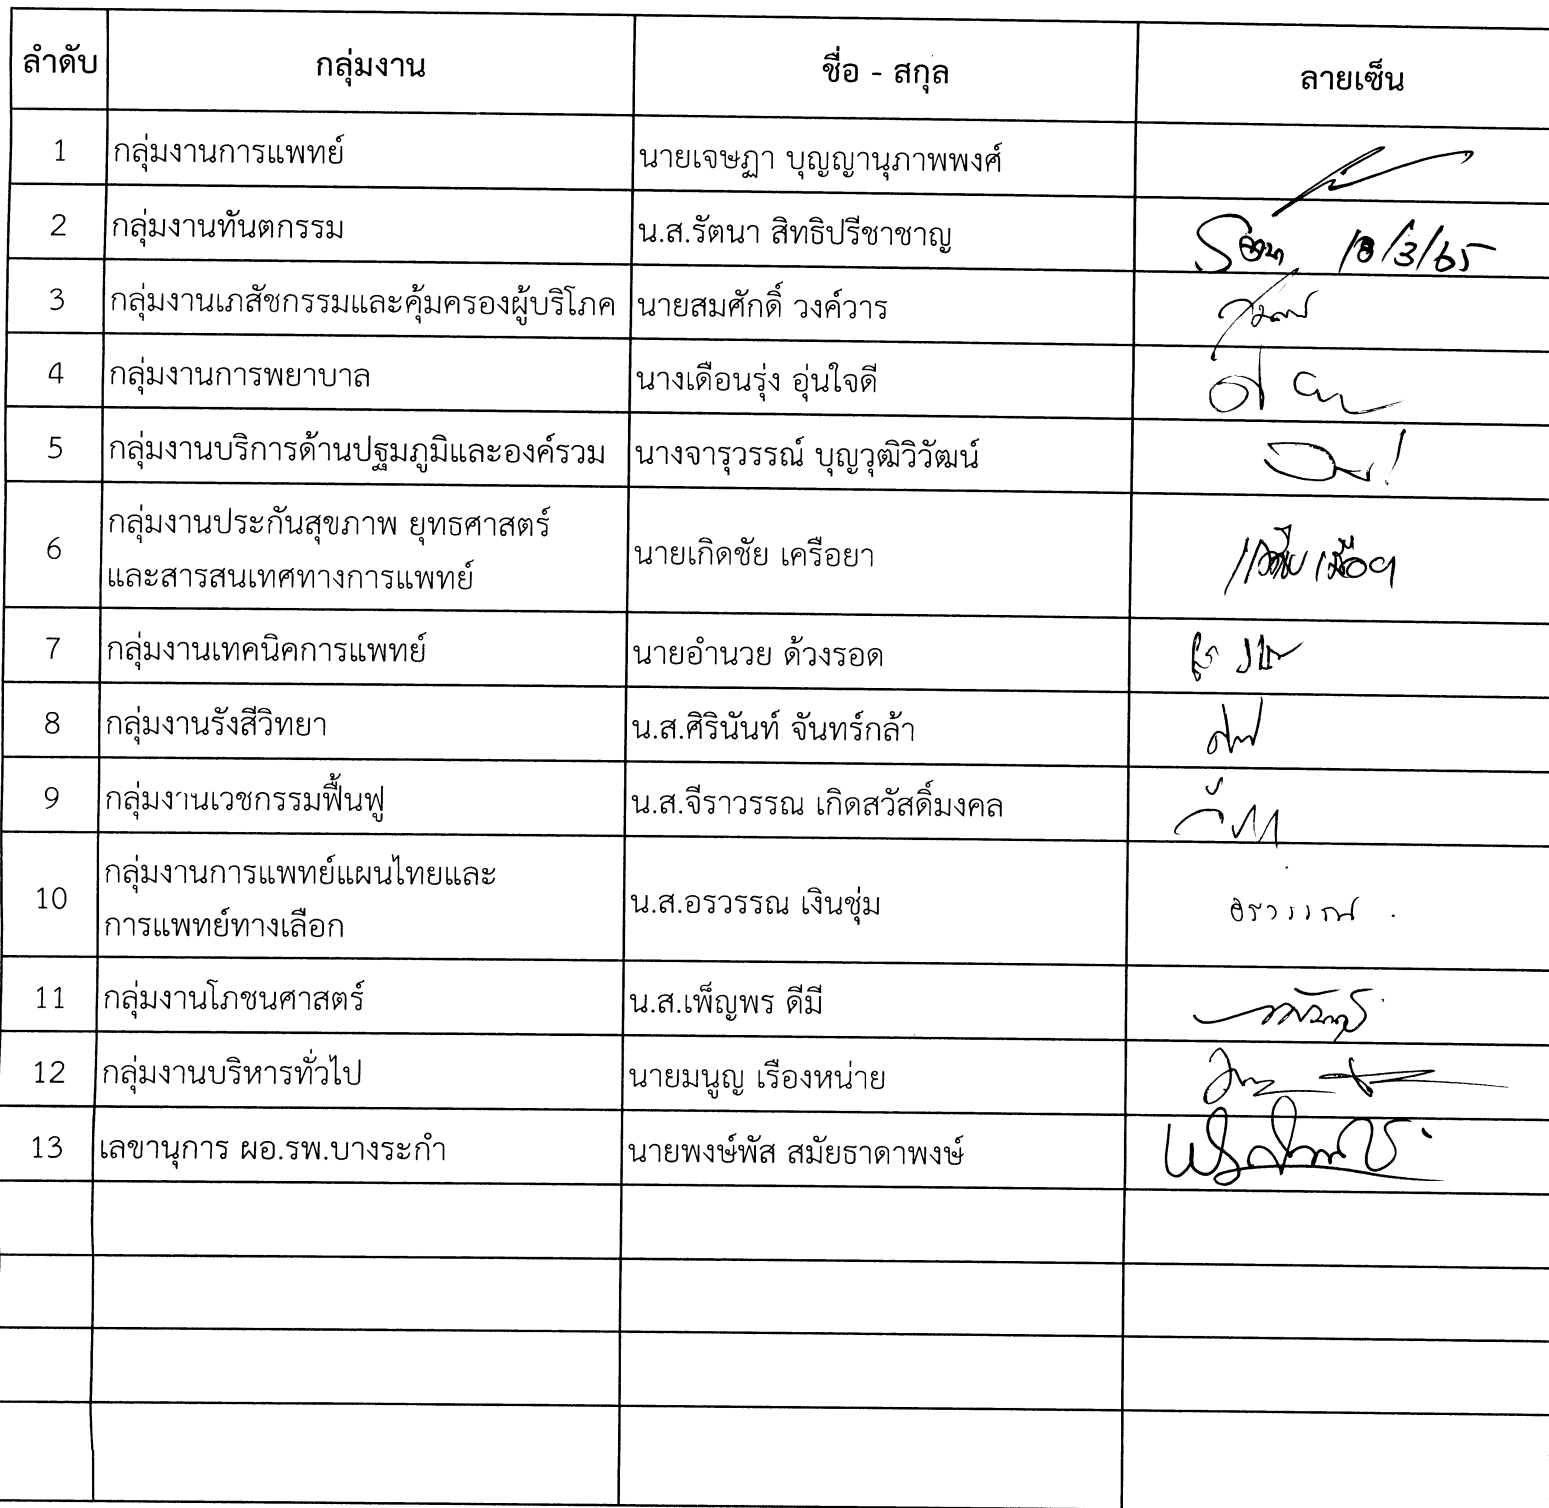 ลำดับ กลุ่มงาน ชื่อ - สกุล ลายเซ็น
1 กลุ่มงานการแพทย์ นายเจษฎา บุญญานุภาพพงศ์
2 กลุ่มงานทันตกรรม น.ส.รัตนา สิทธิปรีชาชาญ รัตนา 18/3/65
3 กลุ่มงานเภสัชกรรมและคุ้มครองผู้บริโภค นายสมศักดิ์ วงค์วาร
4 กลุ่มงานการพยาบาล นางเดือนรุ่ง อุ่นใจดี
5 กลุ่มงานบริการด้านปฐมภูมิและองค์รวม นางจารุวรรณ์ บุญวุฒิวิวัฒน์
กลุ่มงานประกันสุขภาพ ยุทธศาสตร์
6 และสารสนเทศทางการแพทย์ นายเกิดชัย เครือยา
7 กลุ่มงานเทคนิคการแพทย์ นายอำนวย ด้วงรอด
8 กลุ่มงานรังสีวิทยา น.ส.ศิรินันท์ จันทร์กล้า
9 กลุ่มงานเวชกรรมฟื้นฟู น.ส.จีราวรรณ เกิดสวัสดิ์มงคล
กลุ่มงานการแพทย์แผนไทยและ
10 การแพทย์ทางเลือก น.ส.อรวรรณ เงินชุ่ม อรวรรณ
11 กลุ่มงานโภชนศาสตร์ น.ส.เพ็ญพร ดีมี
12 กลุ่มงานบริหารทั่วไป นายมนูญ เรืองหน่าย
13 เลขานุการ ผอ.รพ.บางระกำ นายพงษ์พัส สมัยธาดาพงษ์